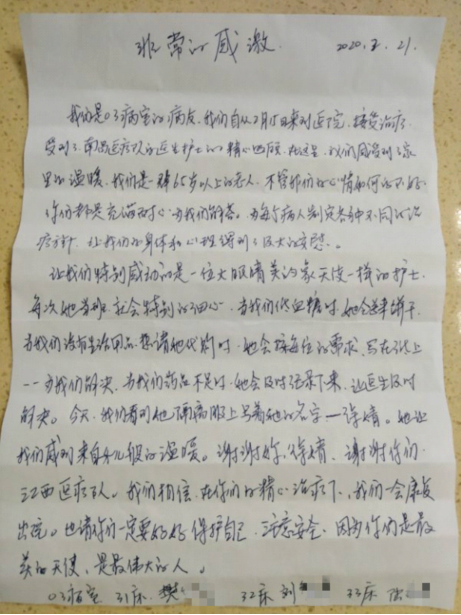 非常的感激
2020.2.21.
我们是03病室的病友,我们自从2月15日来到医院,接受治疗
受到了南昌医疗队的医生护士的精心照顾,在这里,我们感受到了家
里的温暖,我们是一群65岁以上的老人,不管我们的心情如何的不好
你们都是充满耐心为我们解答。为每个病人制定各种不同的治
疗方针,让我们的身体和心理得到了巨大的安慰。
让我们特别感动的是一位大眼睛美的象天使一样的护士.
每次她当班,就会特别的细心,当我们低血糖时,她会送来饼干,
当我们没有生活用品,想请她代购时,她会按每位的要求,写在纸上
一一为我们解决,当我们药品不足时,她会及时记录下来,让医生及时
解决。今天,我们看到她隔离服上写着她的名字—徐婧。她让
我们感到来自女儿般的温暖。谢谢妳,徐婧,谢谢你们
江西医疗队。我们相信,在你们的精心治疗下,我们一会康复
出院。也请你们一定要好好保护自己,注意安全,因为你们是最
美的天使,是最伟大的人。
03病室 31床.樊 32床 刘 33床